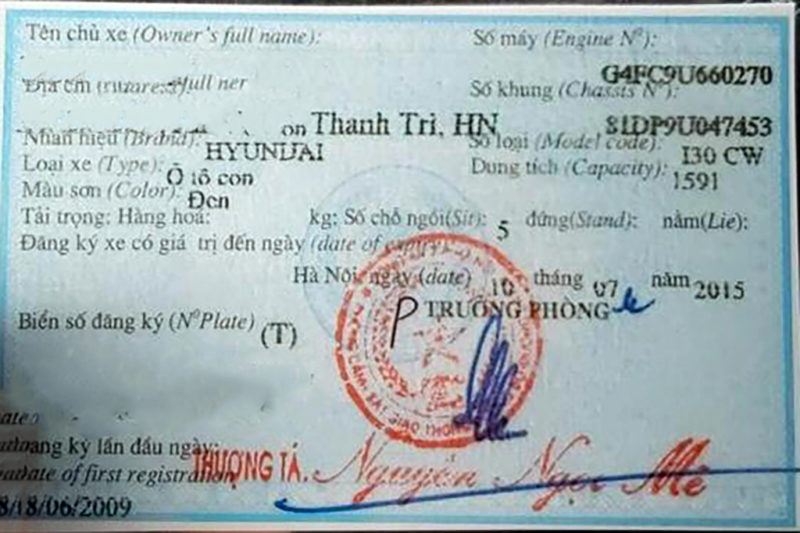 Tên chủ xe (Owner's full name):
Số máy (Engine N⁰):
G4FC9U660270
full ner
Số khung (Chassis N⁰):
on Thanh Trì, HN
81DP9U047453
Nhãn hiệu (Brand):
HYUNDAI
Số loại (Model code):
I30 CW
Loại xe (Type):
Ô tô con
Dung tích (Capacity):
1591
Màu sơn (Color):
Đen
Tải trọng: Hàng hoá: kg: Số chỗ ngồi(Sit): 5 đứng(Stand): nằm(Lie):
Đăng ký xe có giá trị đến ngày (date of expiry)
Hà Nội, ngày (date) 10 tháng 07 năm 2015
P TRƯỞNG PHÒNG
Biển số đăng ký (N⁰Plate) (T)
CẢNH SÁT GIAO THÔNG
ang ký lần đầu ngày:
date of first registration
THƯỢNG TÁ, Nguyễn Ngọc Mê
8/18/06/2009